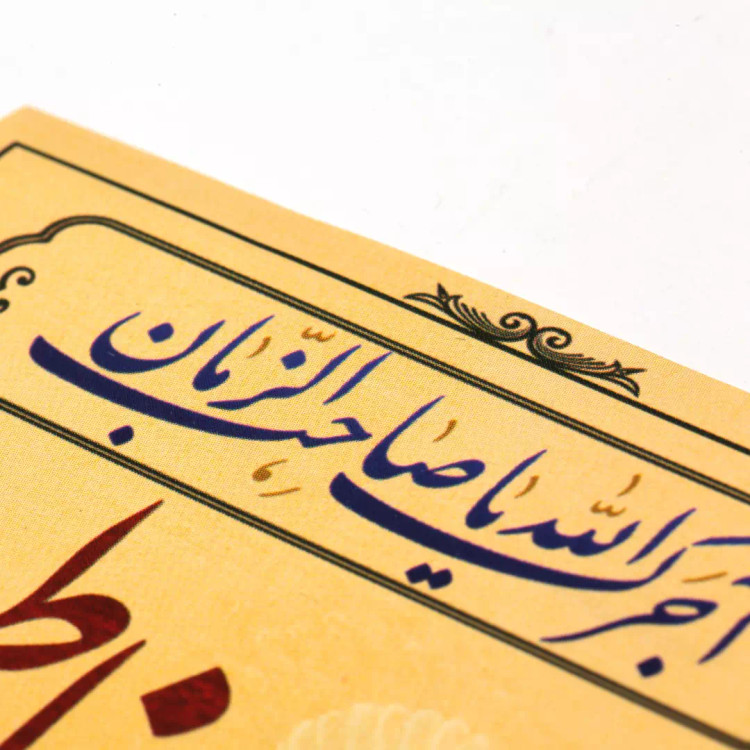 آجرک الله یا صاحب الزّمان